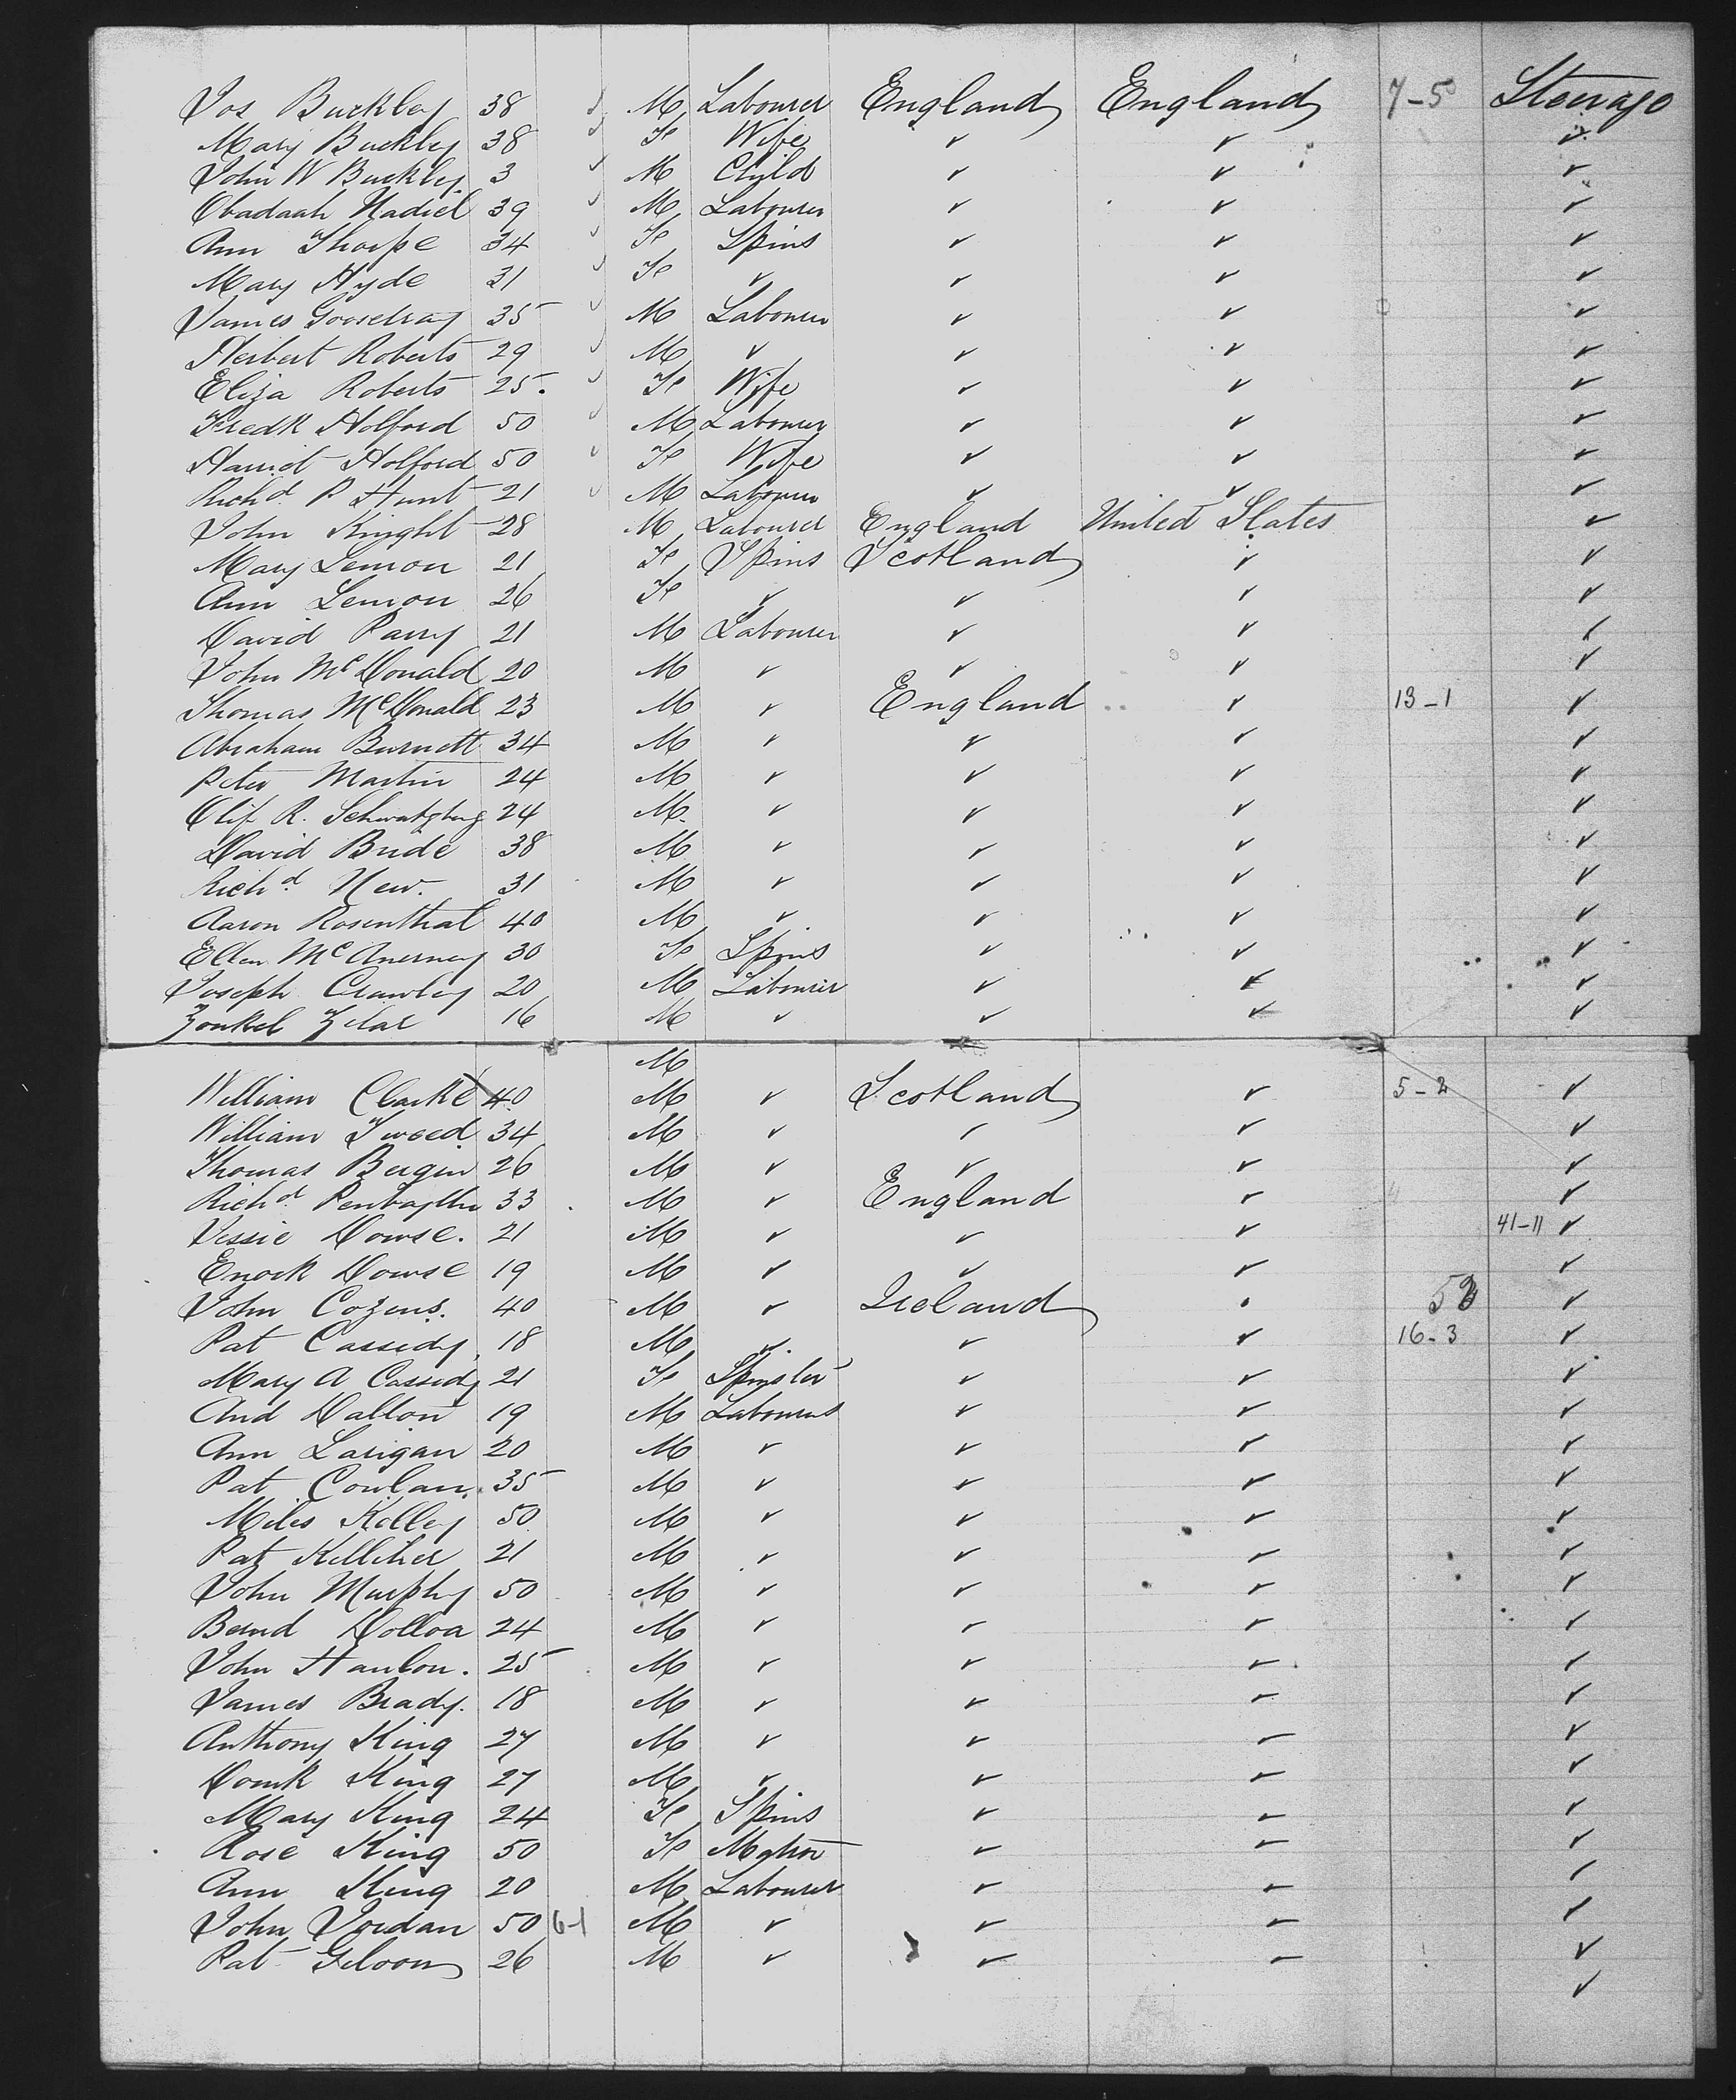 Jos Buckley 38 ✓ M Labourer England England 7-5 Steerage
Mary Buckley 38 ✓ Fe Wife ✓ ✓ ✓
John W Buckley 3 ✓ M Child ✓ ✓ ✓
Obadaah Nadiel 39 ✓ M Labourer ✓ ✓ ✓
Ann Thorpe 34 ✓ Fe Spins ✓ ✓ ✓
Mary Hyde 31 ✓ Fe ✓ ✓ ✓ ✓
James Goosetray 35 ✓ M Labourer ✓ ✓ ✓
Herbert Roberts 29 ✓ M ✓ ✓ ✓ ✓
Eliza Roberts 25. ✓ Fe Wife ✓ ✓ ✓
Fredk Holford 50 ✓ M Labourer ✓ ✓ ✓
Harriet Holford 50 ✓ Fe Wife ✓ ✓ ✓
Richd P Hunt 21 ✓ M Labourer ✓ ✓ ✓
John Knight 28 M Labourer England United States ✓
Mary Lemon 21 Fe Spins Scotland ✓ ✓
Ann Lemon 26 Fe ✓ ✓ ✓ ✓
David Parry 21 M Labourer ✓ ✓ ✓
John McDonald 20 M ✓ ✓ ✓ ✓
Thomas McDonald 23 M ✓ England ✓ 13-1 ✓
Abraham Burnett 34 M ✓ ✓ ✓ ✓
Peter Martin 24 M ✓ ✓ ✓ ✓
R. 24 M ✓ ✓ ✓ ✓
David Bride 38 M ✓ ✓ ✓ ✓
Richd New. 31 M ✓ ✓ ✓ ✓
Aaron Rosenthal 40 M ✓ ✓ ✓ ✓
Ellen McAnerney 30 Fe Spins ✓ ✓ ✓
Joseph Crawley 20 M Labourer ✓ ✓ ✓
Zonkel Zilar 16 M ✓ ✓ ✓ ✓
M
William Clarke 40 M ✓ Scotland ✓ 5-2 ✓
William Tweed 34 M ✓ ✓ ✓ ✓
Thomas Bergin 26 M ✓ ✓ ✓ ✓
Richd 33 M ✓ England ✓ 4 ✓
Jessie Dowse. 21 M ✓ ✓ ✓ 41-11 ✓
Enock Dowse 19 M ✓ ✓ ✓ ✓
John Cozens. 40 M ✓ Ireland ✓
Pat Cassidy 18 M ✓ ✓ ✓ 16-3 ✓
Mary A Cassidy 21 Fe Spinster ✓ ✓ ✓
And Dalton 19 M Labourers ✓ ✓ ✓
Ann Larigan 20 M ✓ ✓ ✓ ✓
Pat Conlan. 35 M ✓ ✓ ✓ ✓
Miles Kelley 50 M ✓ ✓ ✓ ✓
Pat Kelliher 21 M ✓ ✓ ✓ ✓
John Murphy 50 M ✓ ✓ ✓ ✓
Bernd Dolloa 24 M ✓ ✓ ✓ ✓
John Hanlon. 25 M ✓ ✓ ✓ ✓
James Brady. 18 M ✓ ✓ ✓ ✓
Anthony King 27 M ✓ ✓ ✓ ✓
Domk King 27 M ✓ ✓ ✓ ✓
Mary King 24 Fe Spins ✓ ✓ ✓
Rose King 50 Fe Matron ✓ ✓ ✓
Ann King 20 M Labourer ✓ ✓ ✓
John Jordan 50 6-1 M ✓ ✓ ✓ ✓
Pat 26 M ✓ ✓ ✓ ✓
✓